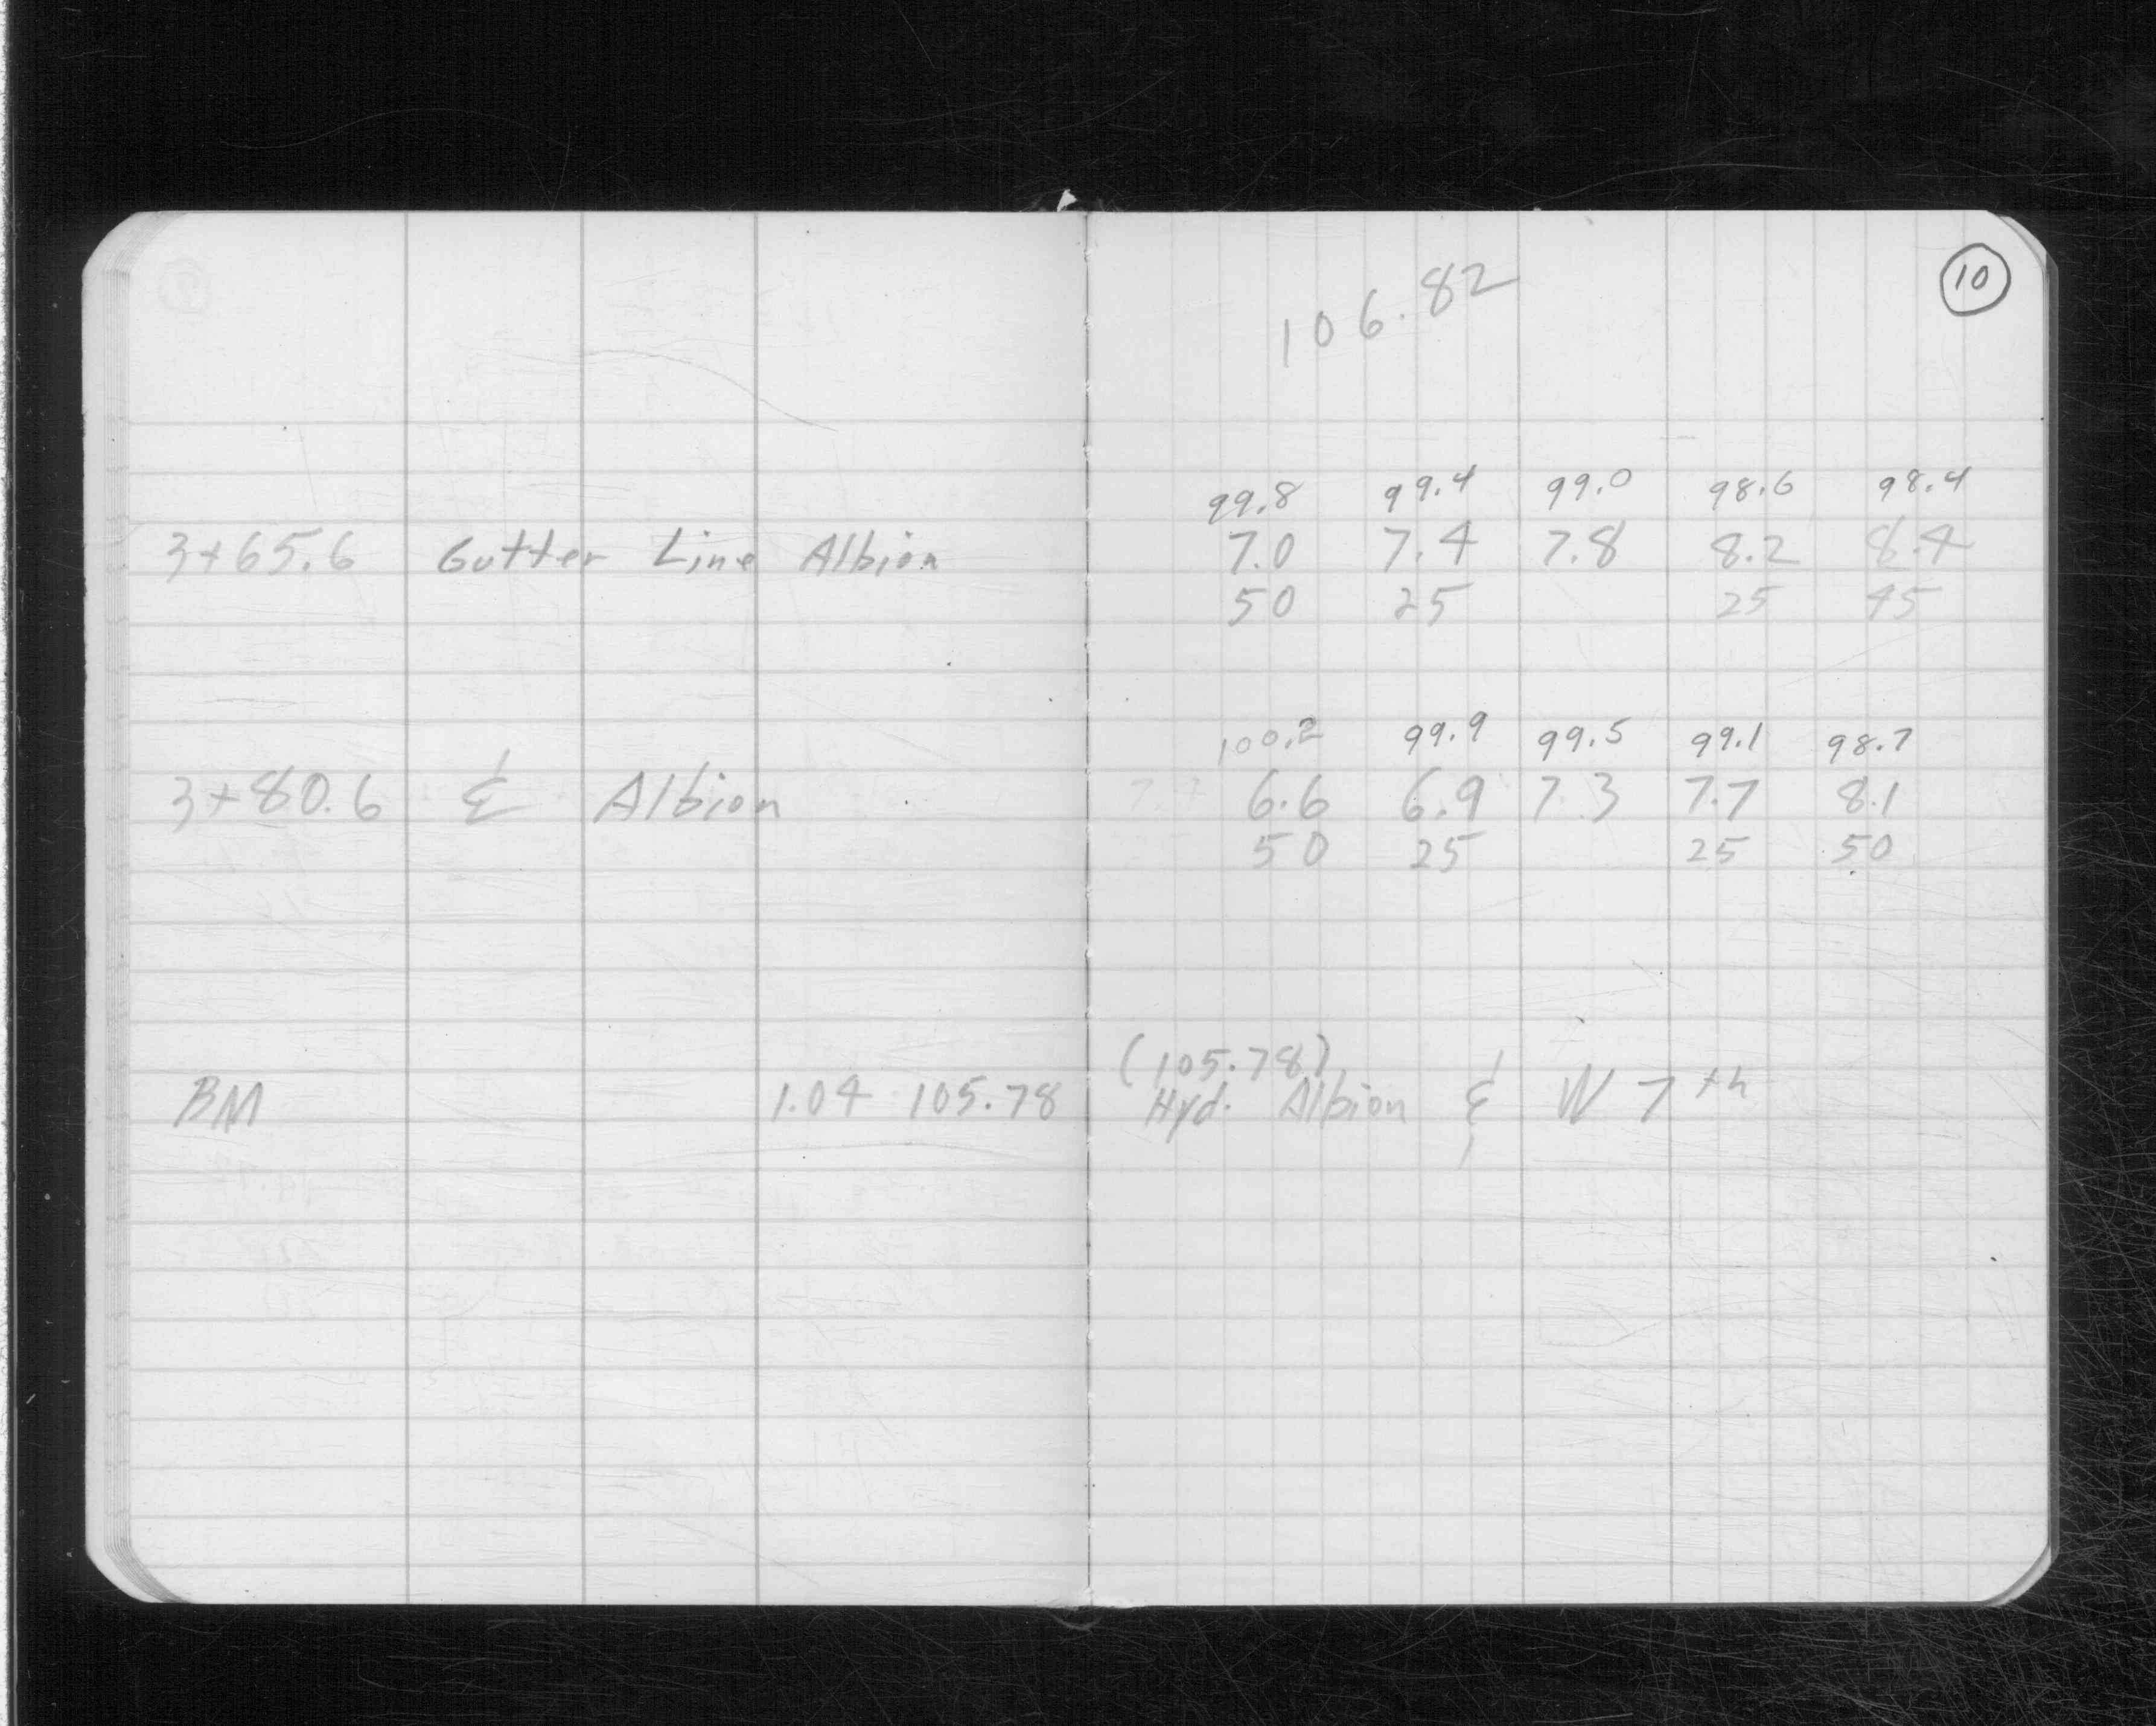 10
106.82
99.8 99.4 99.0 98.6 98.4
3+65.6 Gutter Line Albion 7.0 7.4 7.8 8.2 8.4
50 25 25 45
100.2 99.9 99.5 99.1 98.7
3+80.6 & Albion 6.6 6.9 7.3 7.7 8.1
50 25 25 50
(105.78)
BM 1.04 105.78 Hyd. Albion & W 7th